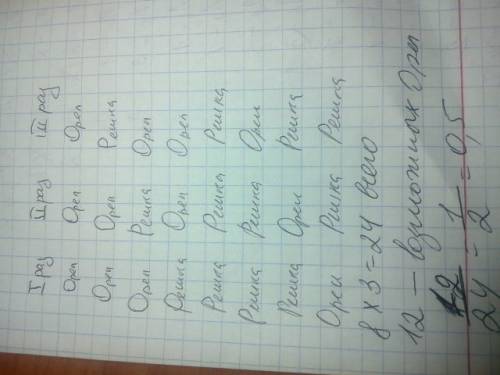 I раз II раз III раз
Орел Орел Орел
Орел Орел Решка
Орел Решка Орел
Решка Орел Орел
Решка Решка Решка
Решка Решка Орел
Решка Орел Решка
Орел Решка Решка
8 x 3 = 24 всего
12 — возможных Орел
12/24 = 1/2 = 0,5